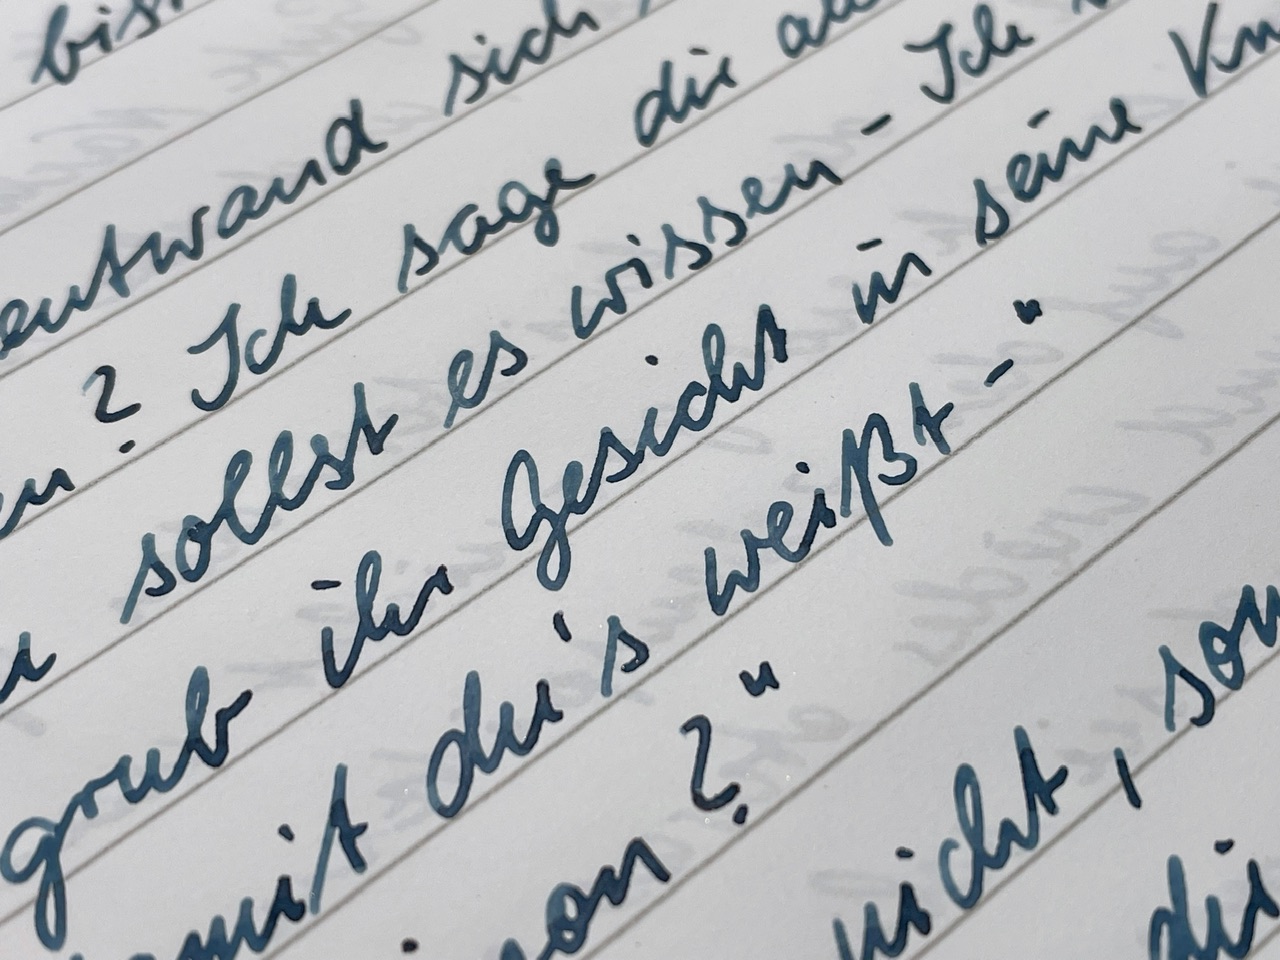 bis
entwand sich,
? Ich sage dir
sollst es wissen - Ich
grub ihr Gesicht in seine
damit du's weißt - "
?"
nicht,
die